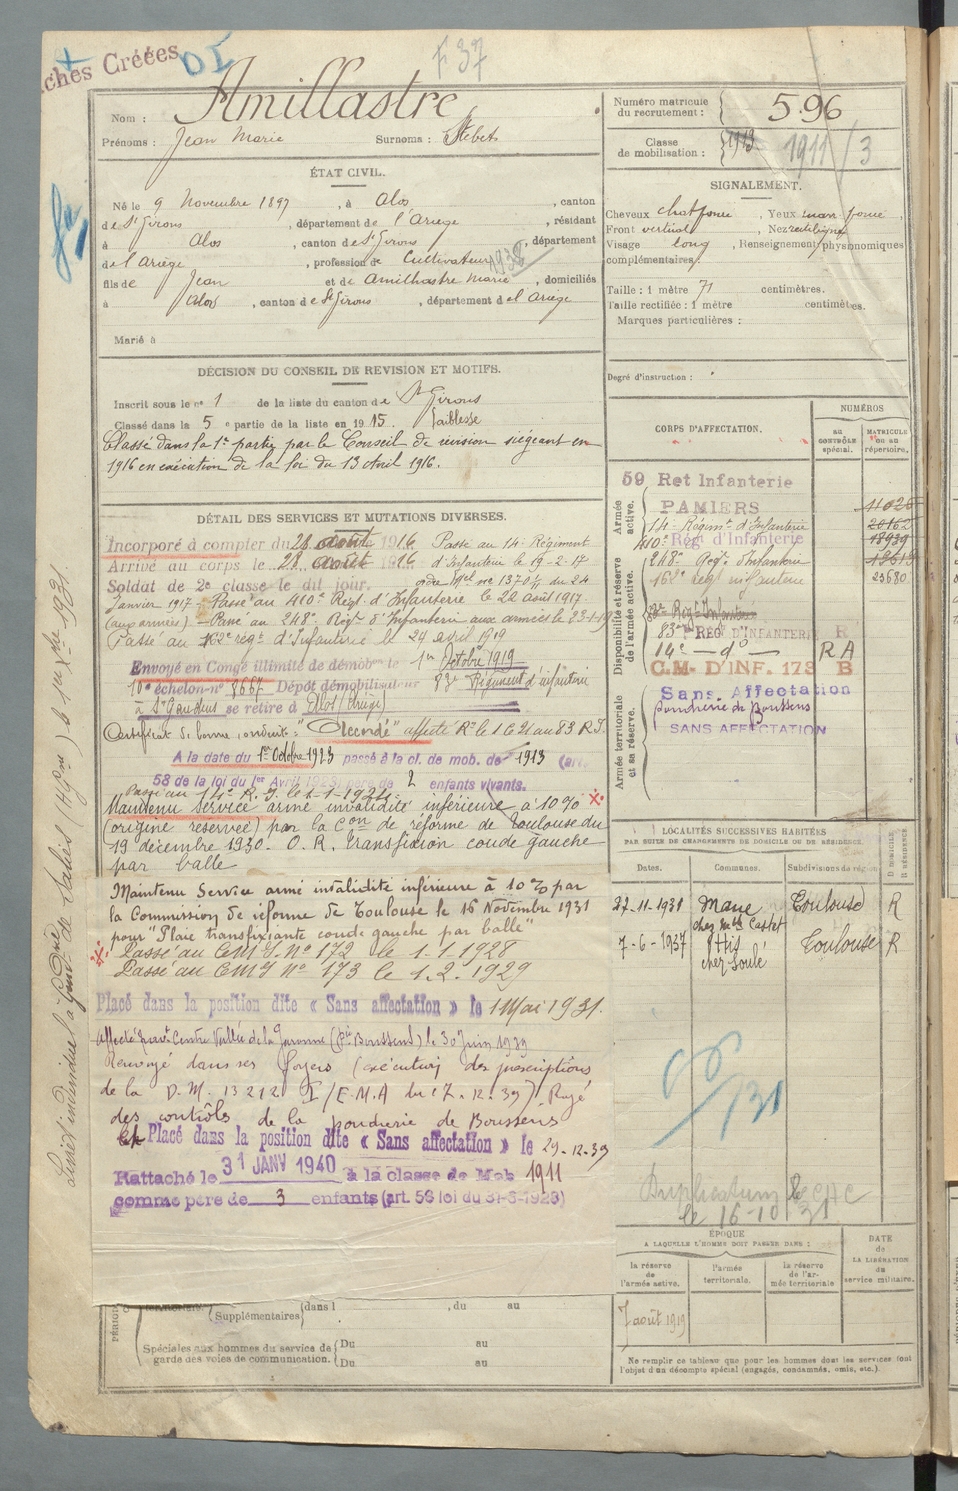 ches Créées
D I
F 37
Nom : Amillastre
Prénoms : Jean Marie Surnoms :
ÉTAT CIVIL.
Né le 9 Novembre 1897, à Alos, canton
de St Girons, département de l'Ariège, résidant
à Alos, canton de St Girons, département
de l'Ariège, profession de Cultivateur 1938
fils de Jean et de Amilhastre Marie, domiciliés
à Alos, canton de St Girons, département de l'Ariège
Marié à
DÉCISION DU CONSEIL DE REVISION ET MOTIFS.
Inscrit sous le n° 1 de la liste du canton de St Girons
Classé dans la 5e partie de la liste en 1915 faiblesse
Classé dans la 1re partie par le Conseil de révision siégeant en
1916 en exécution de la loi du 13 Avril 1916.
DÉTAIL DES SERVICES ET MUTATIONS DIVERSES.
Incorporé à compter du août 1916 Passé au 14e Régiment
Arrivé au corps le 28 août 1916 d'Infanterie le 19-2-17
Soldat de 2e classe le dit jour. ordre Mel no 1370 1/7 du 24
Janvier 1917 - Passé au 410e Régt d'Infanterie le 22 août 1917
(aux armées) - Passé au 248e Régt d'Infanterie aux armées le 23-1-19
Passé au 162e régt d'Infanterie le 24 avril 1919
Envoyé en Congé illimité de démobon le 1er Octobre 1919
10e échelon - no 8667 Dépôt démobilisateur 83e Régiment d'infanterie
à St Gaudens se retire à Alos (Ariège)
Certificat de bonne conduite "Accordé" affecté Re le au 83 R.I.
A la date du 1er Octobre 1923 passé à la cl. de mob. de 1913 (art.
58 de la loi du 1er Avril 1923 de 2 enfants vivants.
Passé au 14e R.I. le 1-1-1924.
Maintenu Service armé invalidité inférieure à 10%
(origine réservée) par la Con de réforme de Toulouse du
19 décembre 1930. O.R. Transfixion coude gauche
par balle
Maintenu Service armé invalidité inférieure à 10% par
la Commission de réforme de Toulouse le 16 Novembre 1931
pour "Plaie transfixiante coude gauche par balle"
Passé au C.M.I. No 172 le 1-1-1928
Passé au C.M.I no 173 le 1.2.1929
Placé dans la position dite « Sans affectation » le 1 Mai 1931.
Affecté Centre Vallée de la Garonne (Pie Boussens) le 30 Juin 1939
Renvoyé dans ses foyers (exécution des prescriptions
de la D.M. 13212 I/E.M.A du 7.12.39) Rayé
des contrôles de la Poudrerie de Boussens
et Placé dans la position dite « Sans affectation » le 29-12-39
Rattaché le 31 JANV 1940 à la classe de Mob 1911
comme père de 3 enfants (art. 58 loi du 31-3-1928)
(Supplémentaires dans l , du au
Spéciales aux hommes du service de garde des voies de communication. Du au
Du au
Numéro matricule du recrutement : 596
Classe de mobilisation : 1913 1911/3
SIGNALEMENT.
Cheveux chat foncé, Yeux marr. foncé,
Front vertical, Nez rectiligne
Visage long, Renseignements physionomiques
complémentaires
Taille : 1 mètre 71 centimètres.
Taille rectifiée : 1 mètre centimètres.
Marques particulières :
Degré d'instruction :
CORPS D'AFFECTATION.
NUMÉROS
au CONTRÔLE spécial.
MATRICULE ou au répertoire.
Armée active.
Disponibilité et réserve de l'armée active.
Armée territoriale et sa réserve.
59 Ret Infanterie
PAMIERS 11025
14e Régimt d'Infanterie 20162
410e Régt d'Infanterie 18939
248e Régt d'Infanterie
162e régt infanterie 23680
83e REGt D'INFANTERIE R
14e — do — RA
C.M. D'INF. 173 B
Sans Affectation
Poudrerie de Boussens
SANS AFFECTATION
LOCALITÉS SUCCESSIVES HABITÉES
PAR SUITE DE CHANGEMENTS DE DOMICILE OU DE RÉSIDENCE.
Dates. Communes. Subdivisions de région. D DOMICILE R RÉSIDENCE
27-11-1931 Mane Toulouse R
chez Castet
7-6-1937 His Toulouse R
chez Soulé
Duplicatum le CAC
le 16-10 31
ÉPOQUE
A LAQUELLE L'HOMME DOIT PASSER DANS :
la réserve de l'armée active.
l'armée territoriale.
la réserve de l'armée territoriale
DATE de LA LIBÉRATION du service militaire.
7 août 1919
Ne remplir ce tableau que pour les hommes dont les services font
l'objet d'un décompte spécial (engagés, condamnés, omis, etc.).